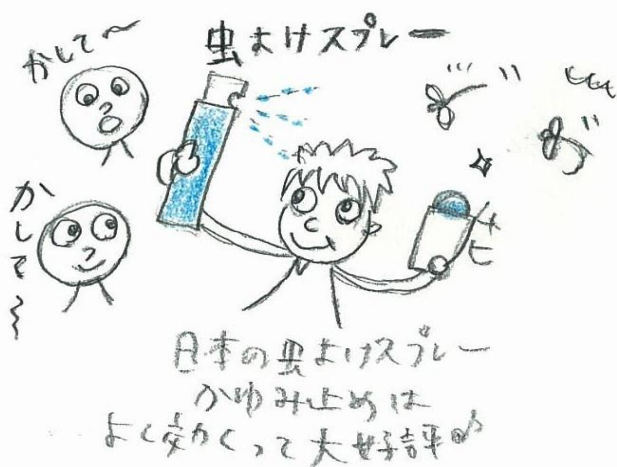 かして〜
虫よけスプレー
かして〜
日本の虫よけスプレー
かゆみ止めは
よく効くって大好評♪